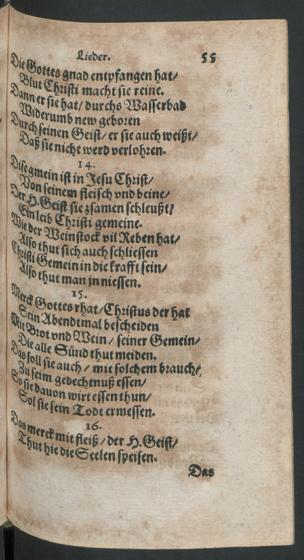 Lieder. 55
Die Gottes gnad entpfangen hat/
Blut Christi macht sie reine.
Dann er sie hat/ durchs Wasserbad
Widerumb new geboren
Durch seinen Geist/ er sie auch weißt/
Daß sie nicht werd verlohren.
14.
Dise gmein ist in Jesu Christ/
Von seinem fleisch vnd beine/
Der H. Geist sie zsamen schleußt/
Ein leib Christi gemeine.
Wie der Weinstock vil Reben hat/
Also thut sich auch schliessen
Christi Gemein in die krafft sein/
Also thut man jn niessen.
15.
Merck Gottes rhat/ Christus der hat
Sein Abendtmal bescheiden
Mit Brot vnd Wein/ seiner Gemein/
Die alle Sünd thut meiden.
Das soll sie auch/ mit solchem brauch/
Zu seim gedechtnuß essen/
So sie davon wirt essen thun/
Sol sie sein Todt ermessen.
16.
Das merck mit fleiß/ der H. Geist/
Thut hie die Seelen speisen.
Das